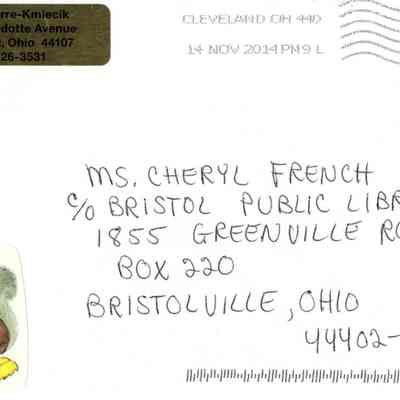 rre-Kmiecik
dotte Avenue
, Ohio 44107
26-3531
CLEVELAND OH 440
14 NOV 2014 PM 9 L
MS. CHERYL FRENCH
c/o BRISTOL PUBLIC LIBR
1855 GREENVILLE RO
BOX 220
BRISTOLVILLE, OHIO
44402-